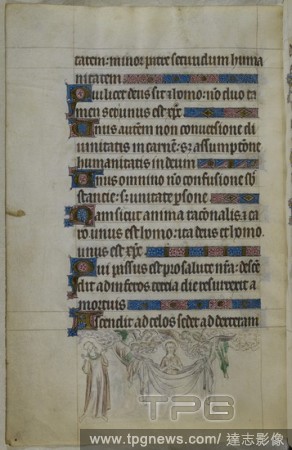 tatem: minor patre secundum huma
nitatem
Qui licet deus sit z homo: nō duo ta
men sed unus est xp̄c
Unus autem non conversione di
vinitatis in carnē: s; assumptone
humanitatis in deum
Unus omnino nō confusione sb
stancie: s; unitate psone
Nam sicut anima racionalis z ca
ro unus est homo: ita deus et homo
unus est xp̄c
Qui passus est pro salute nr̄a: desce
dit ad inferos tercia die resurrexit a
mortuis
Ascendit ad celos sedet ad dexteram
TPG
www.tpgnews.com / 達志影像